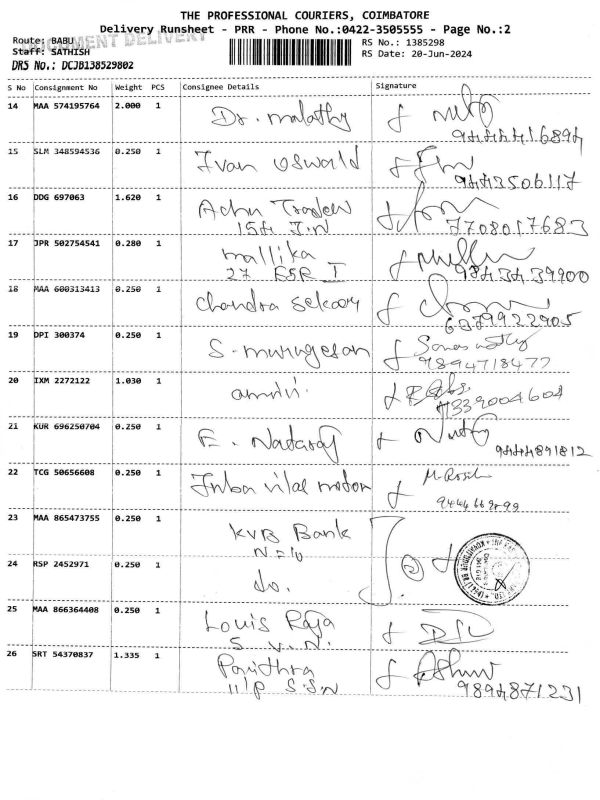 THE PROFESSIONAL COURIERS, COIMBATORE
Delivery Runsheet - PRR - Phone No.:0422-3505555 - Page No.:2
DOCUMENT DELIVERY
Route: BABU
RS No.: 1385298
Staff: SATHISH
RS Date: 20-Jun-2024
DRS No.: DCJB138529802
S No Consignment No Weight PCS Consignee Details Signature
14 MAA 574195764 2.000 1 Dr. malathy
15 SLM 348594536 0.250 1 Ivan oswald
9443506117
16 DDG 697063 1.620 1 Achu Traders
15A J.N 7708017683
17 JPR 502754541 0.280 1 mallika
27 ESR I 9843439900
18 MAA 600313413 0.250 1 Chandra Sekaar
6379922905
19 DPI 300374 0.250 1 S. murugesan
9894718477
20 IXM 2272122 1.030 1
21 KUR 696250704 0.250 1 E. Nataraj
9444891812
22 TCG 50656608 0.250 1 motor
23 MAA 865473755 0.250 1 KVB Bank
24 RSP 2452971 0.250 1 do.
25 MAA 866364408 0.250 1 Louis Raja
S.V.N.
26 SRT 54370837 1.335 1 Pavithra
11/P S.S.N 9894871231